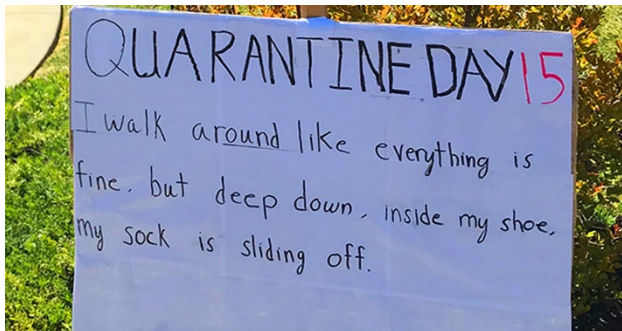 QUARANTINE DAY 15
I walk around like everything is
fine, but deep down, inside my shoe,
my sock is sliding off.